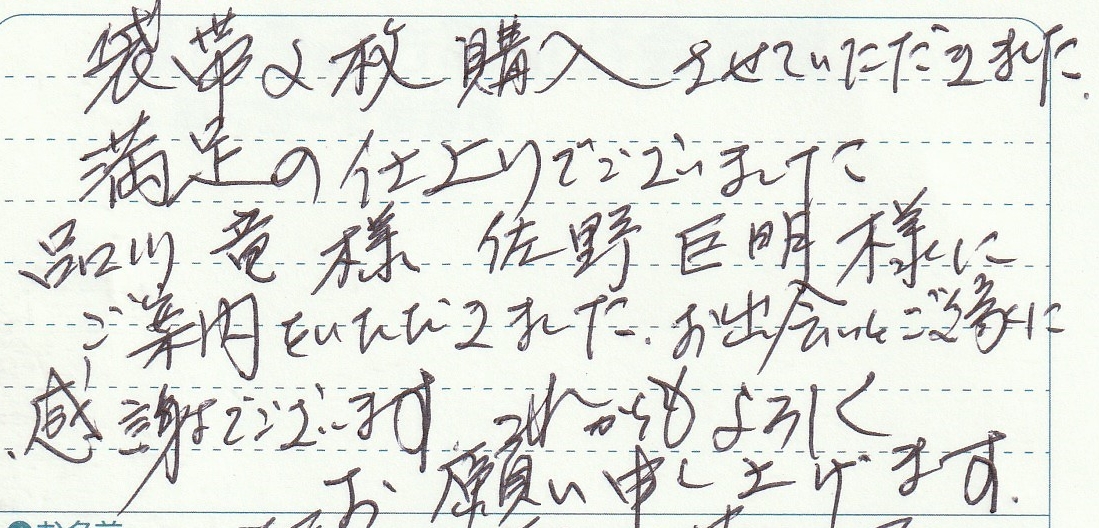 袋帯2枚購入させていただきました.
満足の仕上りでございました
品川 竜 様 佐野 巨明 様に
ご案内をいただきました. お出会いとご縁に
感謝でございます これからもよろしく
お願い申し上げます.
お名前